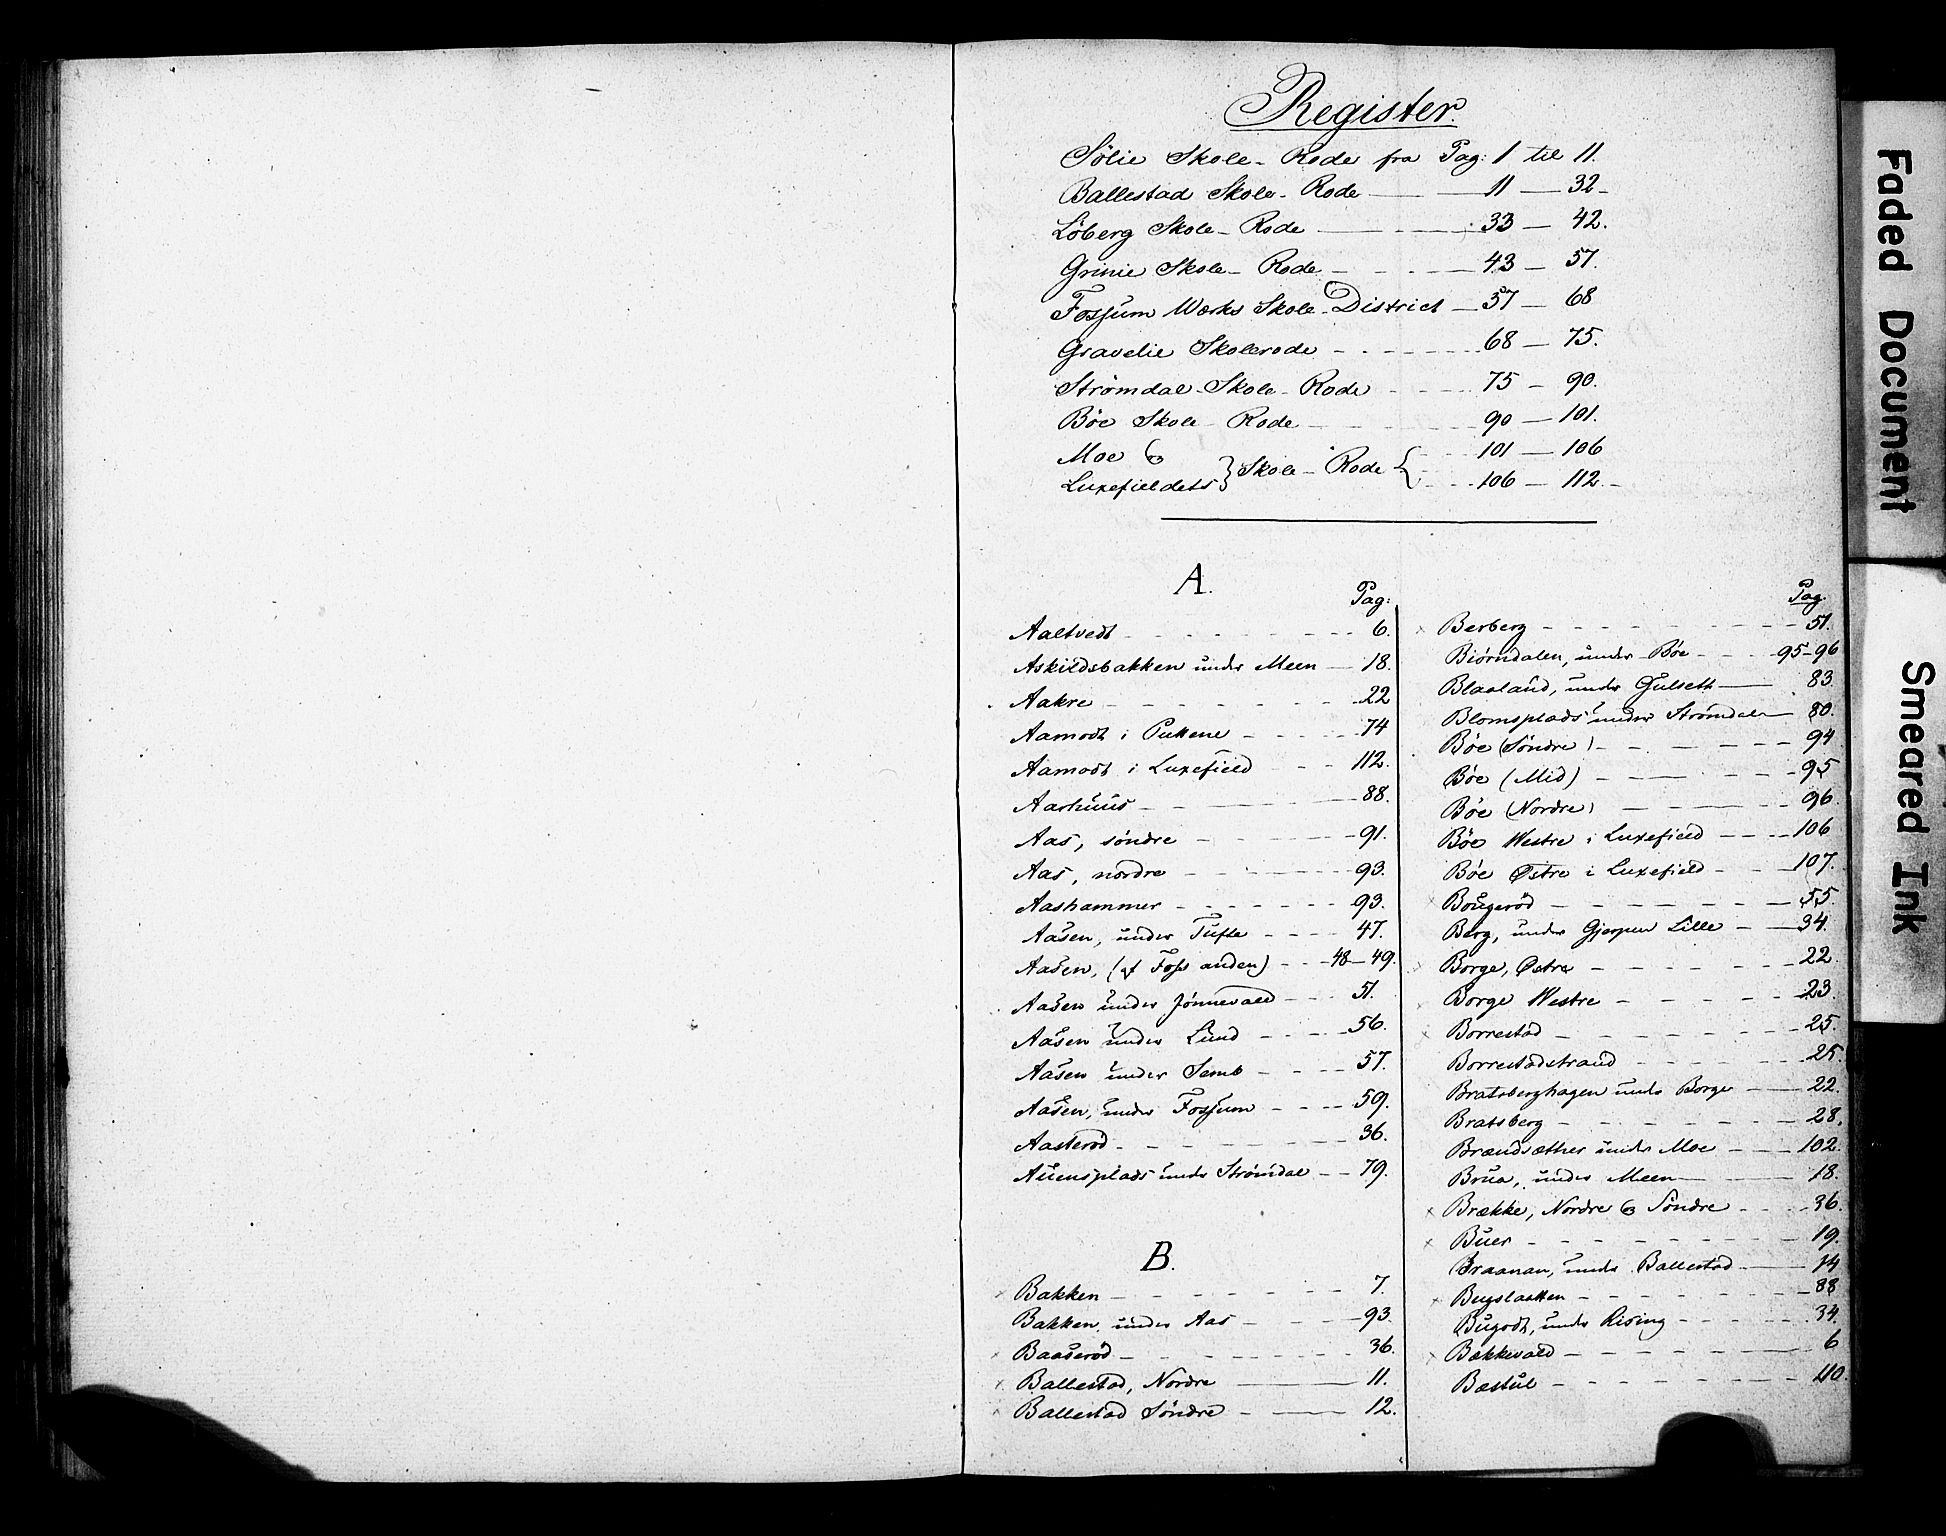 Register.
Sölie Skole-Rode fra Pag: 1 til 11.
Ballestad Skole-Rode — 11 — 32
Löberg Skole-Rode — 33 — 42.
Grinie Skole-Rode — 43 — 57.
Fossum Werks Skole-District — 57 — 68
Gravelie Skolerode - 68 — 75.
Strömdal-Skole-Rode - 75 — 90.
Böe Skole-Rode - 90 — 101.
Moe & } Skole-Rode { 101 — 106
Luxefieldets } { 106 — 112.
A.
Pag:
Aaltvedt - 6.
Askildsbakken under Meen — 18.
Aakre - 22
Aamodt i Puttene - 74
Aamodt i Luxefield - 112.
Aarhuus - 88.
Aas, söndre - 91.
Aas, nordre - 93.
Aashammer - 93.
Aasen, under Tufte - 47.
Aasen, (af Foss anden) - 48-49.
Aasen under Jönnevald - 51.
Aasen under Lund - 56.
Aasen under Semb - 57.
Aasen, under Fossum - 59.
Aasteröd - 36.
Auensplads under Strömdal - 79.
B.
Bakken - 7.
Bakken, under Aas - 93.
Baaseröd - 36.
Ballestad, Nordre — 11.
Ballestad Söndre — 12.
Pag.
Berberg - 51.
Biörndalen, under Böe - 95-96
Blaaland, under Gulseth — 83.
Blomsplads under Strömdal — 80.
Böe (Söndre) - 94
Böe (Mid) - 95
Böe (Nordre) — 96
Böe Westre i Luxefield - 106
Böe Østre i Luxefield - 107.
Bougeröd - 55.
Berg, under Gjerpen Lille - 34.
Borge, Østre - 22
Borge Westre - 23.
Borrestad - 25.
Borrestadstrand - 25.
Bratsberghagen under Borge — 22.
Bratsberg - 28.
Brændsæther under Moe - 102.
Brua, under Meen — 18.
Brække, Nordre & Söndre - 36.
Buer - 19.
Braanan, under Ballestad — 14
Bugslaatten - 88
Bugodt, under Rising - 34.
Bakkevald - 6
Bæstul - 110.
Faded Document
Smeared Ink